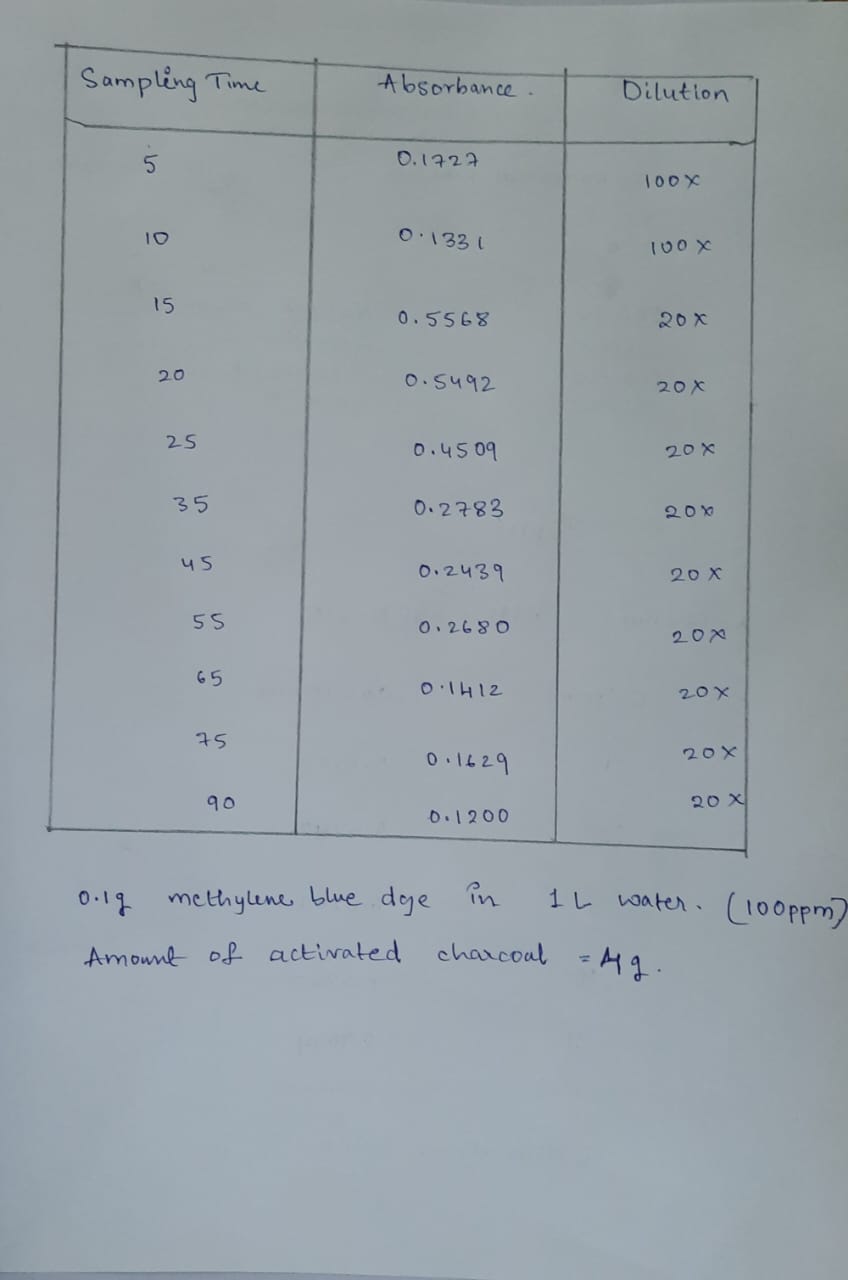 Sampling Time Absorbance. Dilution
5 0.1727 100x
10 0.1331 100x
15 0.5568 20x
20 0.5492 20x
25 0.4509 20x
35 0.2783 20x
45 0.2439 20x
55 0.2680 20x
65 0.1412 20x
75 0.1629 20x
90 0.1200 20x
0.1g methylene blue dye in 1 L water. (100ppm)
Amount of activated charcoal = 4g.